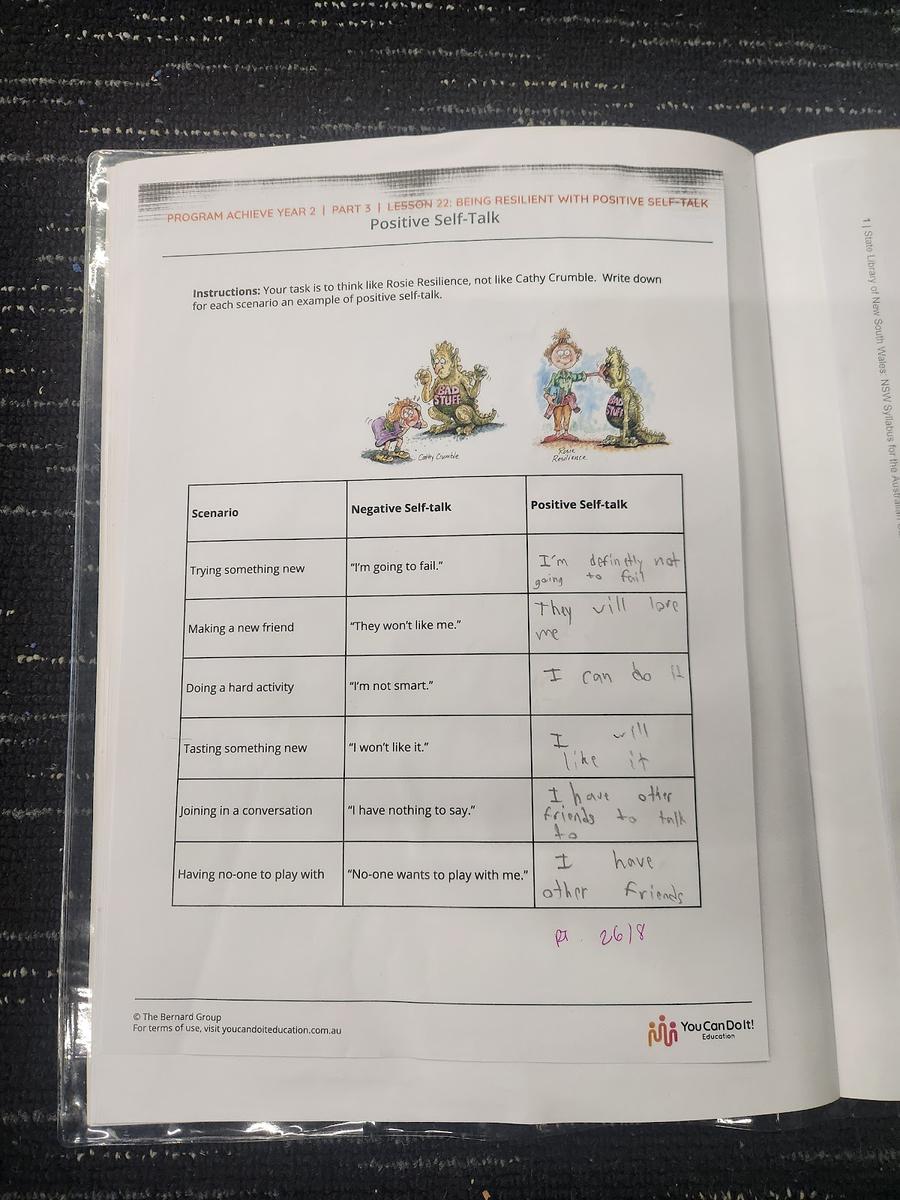 PROGRAM ACHIEVE YEAR 2 | PART 3 | LESSON 22: BEING RESILIENT WITH POSITIVE SELF-TALK
Positive Self-Talk
Instructions: Your task is to think like Rosie Resilience, not like Cathy Crumble. Write down
for each scenario an example of positive self-talk.
BAD
STUFF
Cathy Crumble
BAD
STUFF
Rosie
Resilience
Scenario
Negative Self-talk
Positive Self-talk
Trying something new
“I’m going to fail.”
I'm definetly not
going to fail
Making a new friend
“They won’t like me.”
They will love
me
Doing a hard activity
“I’m not smart.”
I can do it
Tasting something new
“I won’t like it.”
I will
like it
Joining in a conversation
“I have nothing to say.”
I have other
friends to talk
to
Having no-one to play with
“No-one wants to play with me.”
I have
other friends
26/8
© The Bernard Group
For terms of use, visit youcandoiteducation.com.au
You Can Do It!
Education
1 | State Library of New South Wales NSW Syllabus for the Australian